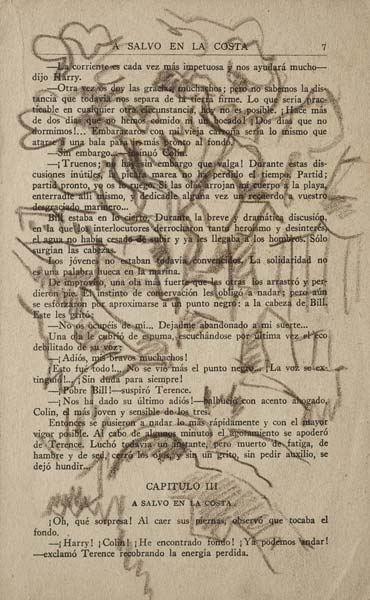 A SALVO EN LA COSTA 7
—La corriente es cada vez más impetuosa y nos ayudará mucho—
dijo Harry.
—Otra vez os doy las gracias, muchachos; pero no sabemos la dis-
tancia que todavía nos separa de la tierra firme. Lo que sería prac-
ticable en cualquier otra circunstancia, hoy no es posible. ¡Hace más
de dos días que no hemos comido ni un bocado! ¡Dos días que no
dormimos!... Embarazaros con mi vieja carroña sería lo mismo que
ataros una bala para ir más pronto al fondo.
—Sin embargo... —insinuó Colin.
—¡Truenos; no hay sin embargo que valga! Durante estas dis-
cusiones inútiles, la pícara marea no ha perdido el tiempo. Partid;
partid pronto, yo os lo ruego. Si las olas arrojan mi cuerpo a la playa,
enterradle allí mismo, y dedicadle alguna vez un recuerdo a vuestro
desgraciado marinero...
Bill estaba en lo cierto. Durante la breve y dramática discusión,
en la que los interlocutores derrochaban tanto heroísmo y desinterés,
el agua no había cesado de subir y ya les llegaba a los hombros. Sólo
surgían las cabezas.
Los jóvenes no estaban todavía convencidos. La solidaridad no
es una palabra hueca en la marina.
De improviso, una ola más fuerte que las otras los arrastró y per-
dieron pie. El instinto de conservación les obligó a nadar; pero aún
se esforzaron por aproximarse a un punto negro: a la cabeza de Bill.
Este les gritó:
—No os ocupéis de mí... Dejadme abandonado a mi suerte...
Una ola le cubrió de espuma, escuchándose por última vez el eco
debilitado de su voz:
—¡Adiós, mis bravos muchachos!
¡Esto fue todo!... No se vio más el punto negro... ¡La voz se ex-
tinguió!... ¡Sin duda para siempre!
—¡Pobre Bill!—suspiró Terence.
—¡Nos ha dado su último adiós!—balbuceó con acento ahogado,
Colin, el más joven y sensible de los tres.
Entonces se pusieron a nadar lo más rápidamente y con el mayor
vigor posible. Al cabo de algunos minutos el agotamiento se apoderó
de Terence. Luchó todavía un instante, pero muerto de fatiga, de
hambre y de sed, cerró los ojos, y sin un grito, sin pedir auxilio, se
dejó hundir...
CAPITULO III
A SALVO EN LA COSTA
¡Oh, qué sorpresa! Al caer sus piernas, observó que tocaba el
fondo.
—¡Harry! ¡Colin! ¡He encontrado fondo! ¡Ya podemos andar!
—exclamó Terence recobrando la energía perdida.